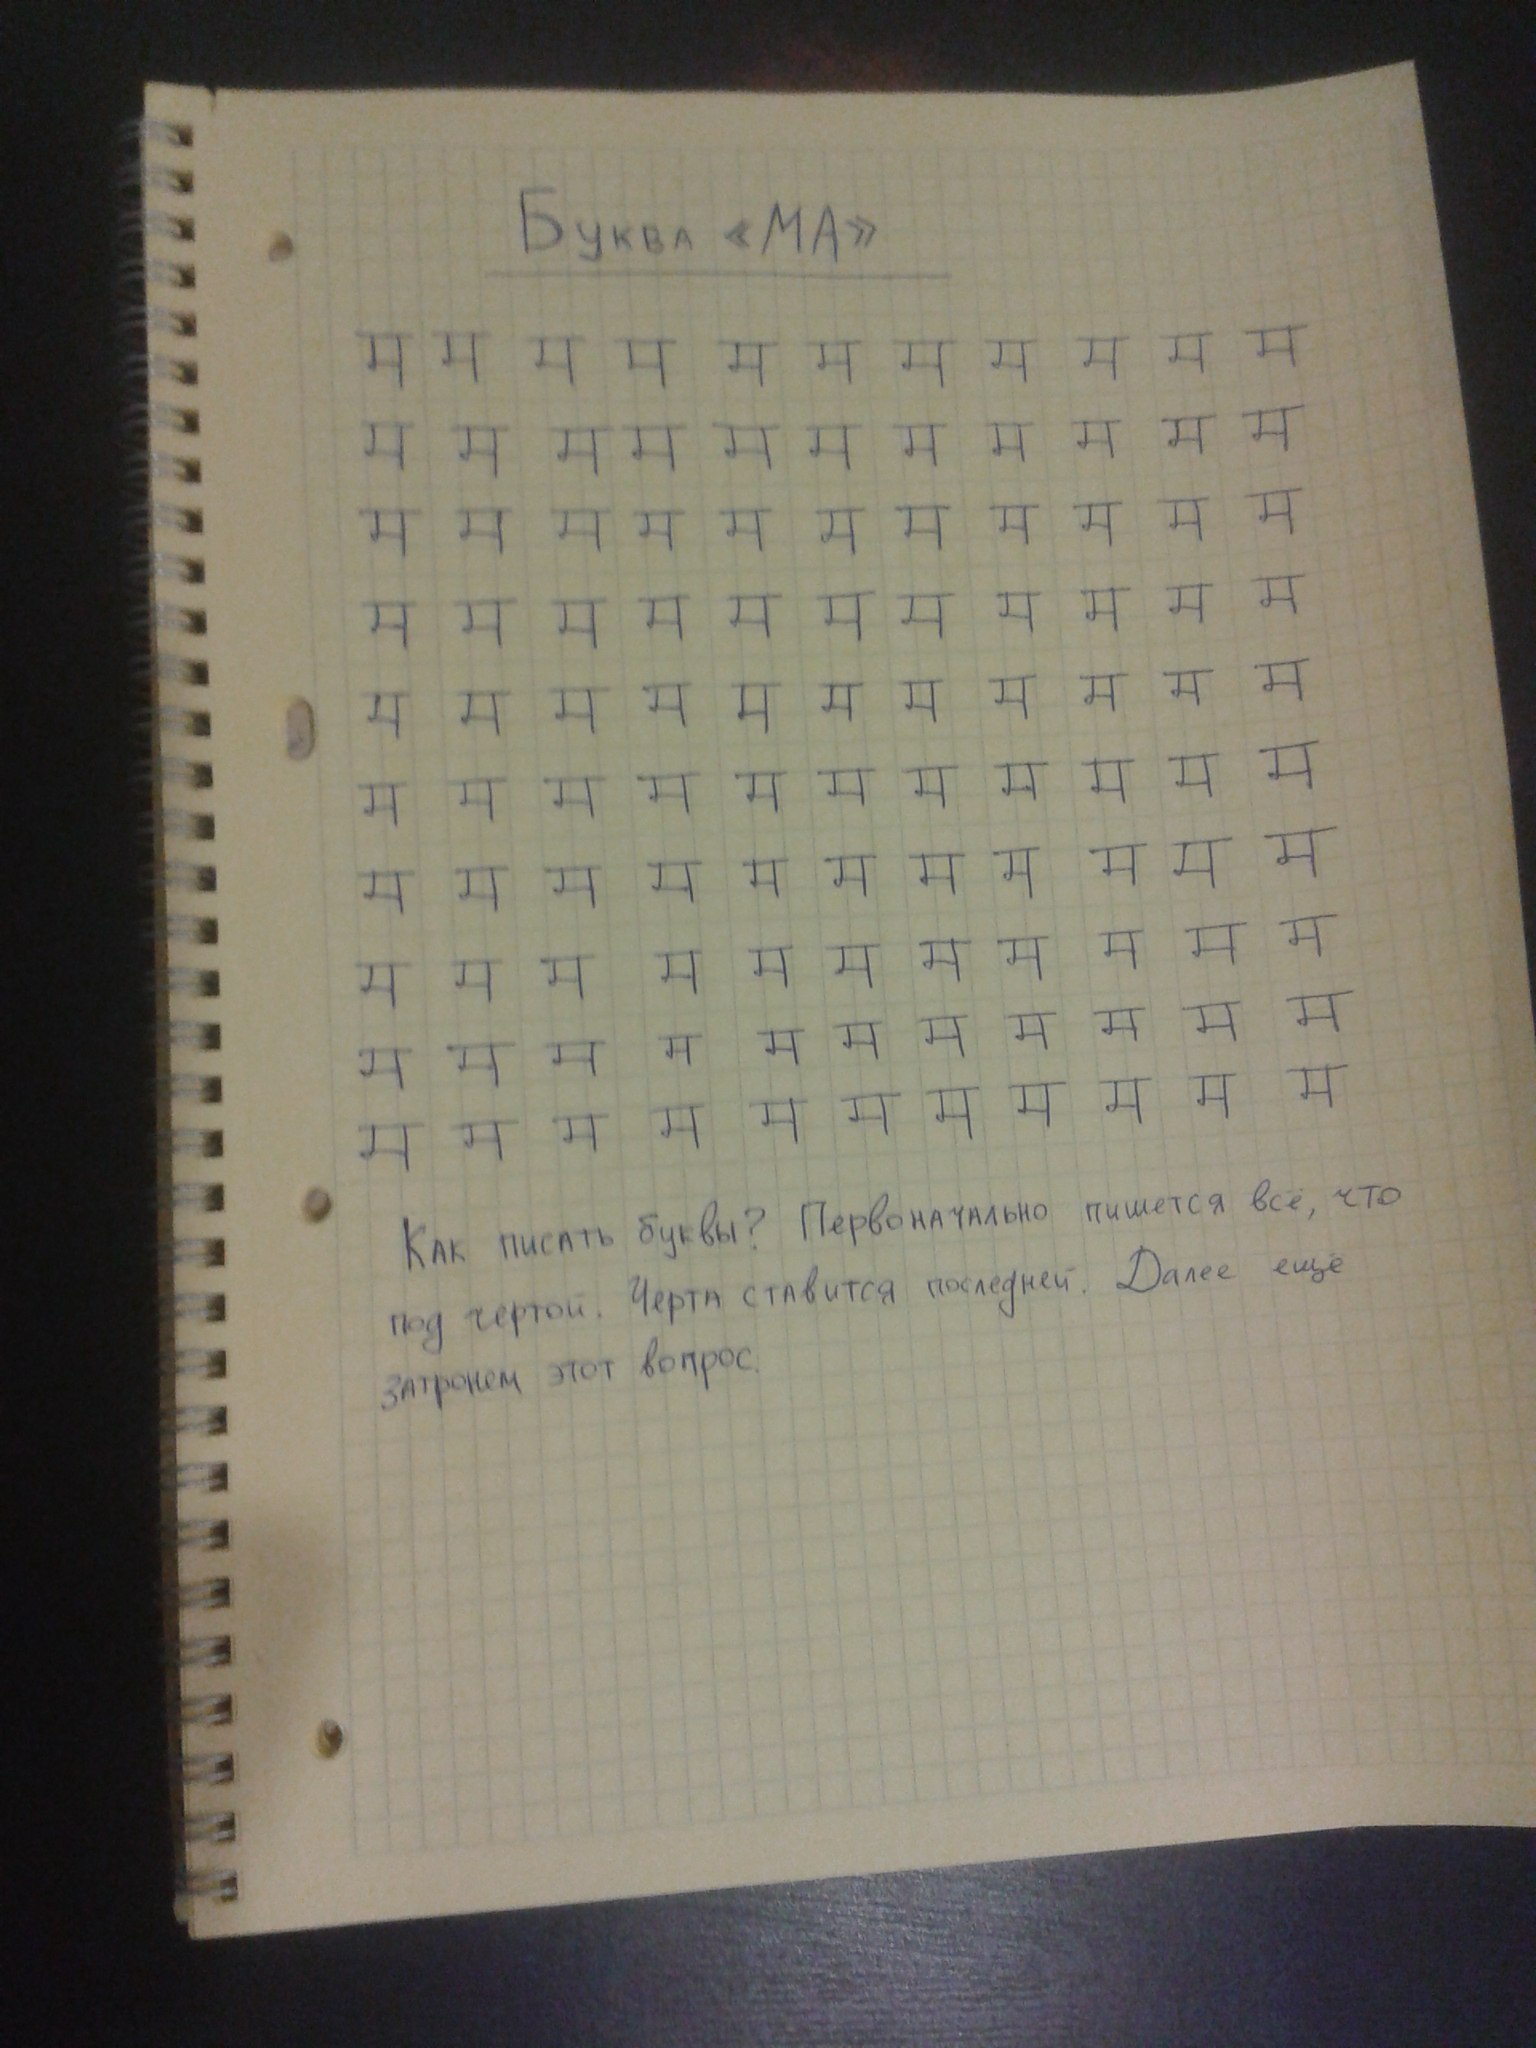 Буква «МА»
म म म म म म म म म म म
म म म म म म म म म म म
म म म म म म म म म म म
म म म म म म म म म म म
म म म म म म म म म म म
म म म म म म म म म म म
म म म म म म म म म म म
म म म म म म म म म म म
म म म म म म म म म म म
म म म म म म म म म म म
Как писать буквы? Первоначально пишется всё, что
под чертой. Черта ставится последней. Далее ещё
затронем этот вопрос.